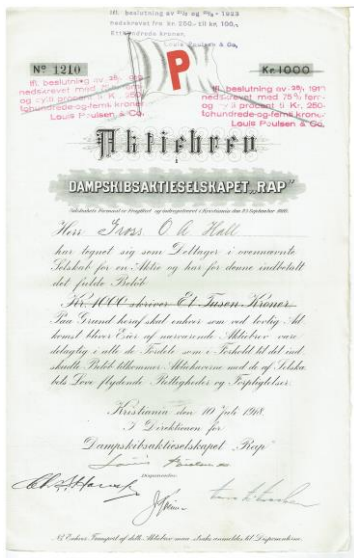 Ifl. beslutning av
nedskrevet fra kr. 250.- til kr. 100,-
Ett hundrede kroner.
Louis Poulsen & Co.
P
No 1210
Kr. 1000
Ifl. beslutning av
nedskrevet med
Kr. 250-
tohundrede-og-femti kroner
Louis Poulsen & Co.
Ifl. beslutning av
nedskrevet med 75%
og procent til Kr. 250-
tohundrede-og-femti kroner
Louis Poulsen & Co.
Aktiebrev
i
DAMPSKIBSAKTIESELSKAPET „RAP"
Herr Gross O A Hall
har tegnet sig som Deltager i ovennævnte
Selskab for en Aktie og har for denne indbetalt
det fulde Beløb
Kr 1000 skriver Et Tusen Kroner
Paa Grund heraf skal enhver som ved lovlig Ad
komst bliver Eier af nærværende Aktiebrev være
delagtig i alle de Fordele som i Forhold til det ind
skudte Beløb tilkommer Aktiehaverne med de af Selska
bets Love flydende Rettigheder og Forpligtelser.
Kristiania den 10 Juli 1918.
I Direktionen for
Dampskibsaktieselskapet „Rap"
NB. Enhver Transport af dette Aktiebrev maa straks anmeldes til Disponenterne.